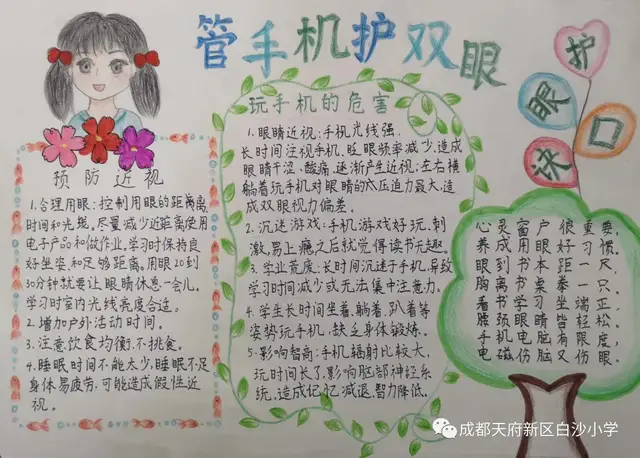 管手机护双眼
预防近视
1.合理用眼:控制用眼的距离,
时间和光线。尽量减少近距离使用
电子产品和做作业,学习时保持良
好坐姿,和足够距离。用眼20到
30分钟就要让眼睛休息一会儿。
学习时室内光线亮度合适。
2.增加户外活动时间。
3.注意饮食均衡,不挑食。
4.睡眠时间不能太少,睡眠不足
身体易疲劳,可能造成假性近
视。
玩手机的危害
1.眼睛近视:手机光线强,
长时间注视手机,眨眼频率减少,造成
眼睛干涩、酸痛,逐渐产生近视;左右横
躺着玩手机对眼睛的压迫力最大,造
成双眼视力偏差。
2.沉迷游戏:手机游戏好玩、刺
激,易上瘾之后就觉得读书无趣。
3.学业荒废:长时间沉迷于手机,导致
学习时间减少或无法集中注意力。
4.学生长时间坐着、躺着、趴着等
姿势玩手机,缺乏身体锻炼。
5.影响智商:手机辐射比较大,
玩时间长了,影响脑部神经系
统,造成记忆减退,智力降低。
护眼口诀
心灵窗户很重要,
养成用眼好习惯。
眼到书本距一尺,
胸离书桌拳一只。
看书学习坐端正,
腰颈眼睛皆轻松。
手机电脑有限度,
电磁伤脑又伤眼。
成都天府新区白沙小学